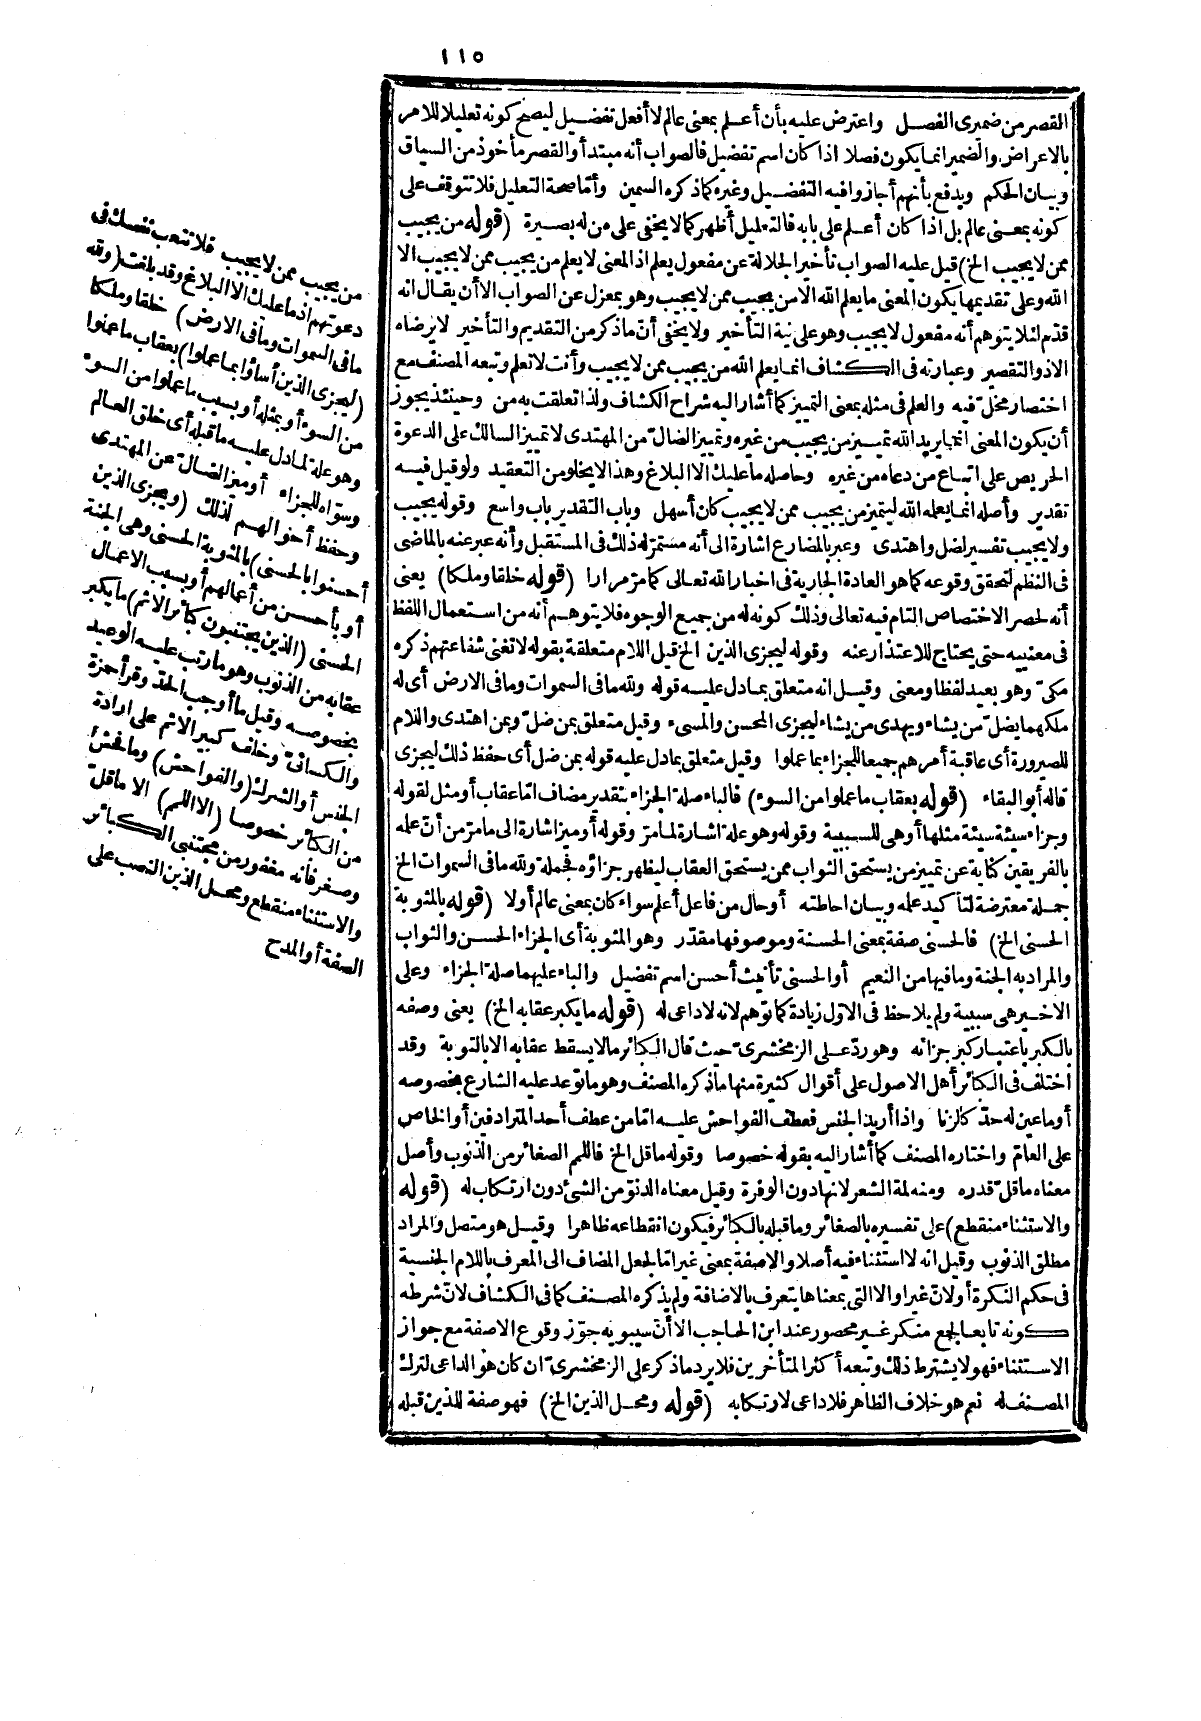 ١١٥
القصر من ضميرى الفصل واعترض عليه بأن أعلم بمعنى عالم لا أفعل تفضيل ليصح كونه تعليلا للامر
بالاعراض. والضمير انما يكون فصلا اذا كان اسم تفضيل فالصواب أنه مبتدأ والقصر مأخوذ من السياق
وبيان الحكم ويدفع بأنهم أجازوا فيه التفضيل وغيره كما ذكره السمين وأمّا صحة التعليل فلا تتوقف على
كونه بمعنى عالم بل اذا كان أعلم على بابه فالتعليل أظهر كما لا يخفى على من له بصيرة (قوله من يجيب
ممن لا يجيب الخ) قيل عليه الصواب تأخير الجلالة عن مفعول يعلم اذ المعنى لا يعلم من يجيب ممن لا يجيب الا
الله وعلى تقديمها يكون المعنى ما يعلم الله الا من يجيب ممن لا يجيب وهو بمعزل عن الصواب الا أن يقال انه
قدّم لئلا يتوهم أنه مفعول لا يجيب وهو على نية التأخير ولا يخفى أنّ ما ذكر من التقديم والتأخير لا يرضاه
الا ذو التقصير وعبارته فى الكشاف انما يعلم الله من يجيب ممن لا يجيب وأنت لا تعلم وتبعه المصنف مع
اختصار مخلّ فيه والعلم فى مثله بمعنى التمييز كما أشار اليه شراح الكشاف ولذا تعلقت به من وحينئذ يجوز
أن يكون المعنى انما يريد الله تمييز من يجيب من غيره وتمييز الضالّ من المهتدى لا تمييز السالك على الدعوة
الحريص على اتباع من دعاه من غيره وحاصله ما عليك الا البلاغ وهذا لا يخلو من التعقيد ولو قيل فيه
تقدير وأصله انما يعلمه الله ليتميز من يجيب ممن لا يجيب كان أسهل وباب التقدير باب واسع وقوله يجيب
ولا يجيب تفسير لضل واهتدى وعبر بالمضارع اشارة الى أنه مستمرّ له ذلك فى المستقبل وأنه عبر عنه بالماضى
فى النظم لتحقق وقوعه كما هو العادة الجارية فى اخبار الله تعالى كما مرّ مرارا (قوله خلقا وملكا) يعنى
أنه لحصر الاختصاص التام فيه تعالى وذلك كونه له من جميع الوجوه فلا يتوهم أنه من استعمال اللفظ
فى معنييه حتى يحتاج للاعتذار عنه وقوله ليجزى الذين الخ قيل اللام متعلقة بقوله لا تغنى شفاعتهم ذكره
مكىّ وهو بعيد لفظا ومعنى وقيل انه متعلق بما دل عليه قوله ولله ما فى السموات وما فى الارض أى له
ملكهما يضلّ من يشاء ويهدى من يشاء ليجزى المحسن والمسىء وقيل متعلق بمن ضلّ وبمن اهتدى واللام
للصيرورة أى عاقبة أمرهم جميعا للجزاء بما عملوا وقيل متعلق بما دل عليه قوله بمن ضل أى حفظ ذلك ليجزى
قاله أبو البقاء (قوله بعقاب ما عملوا من السوء) فالباء صلة الجزاء بتقدير مضاف امّا عقاب أو مثل لقوله
وجزاء سيئة سيئة مثلها أو هى للسببية وقوله وهو علة اشارة لما مرّ وقوله أو ميز اشارة الى ما مرّ من أنّ علمه
بالفريقين كناية عن تمييز من يستحق الثواب ممن يستحق العقاب ليظهر جزاؤه فجملة ولله ما فى السموات الخ
جملة معترضة لتأكيد علمه وبيان احاطته أو حال من فاعل أعلم سواء كان بمعنى عالم أو لا (قوله بالمثوبة
الحسنى الخ) فالحسنى صفة بمعنى الحسنة وموصوفها مقدّر وهو المثوبة أى الجزاء الحسن والثواب
والمراد به الجنة وما فيها من النعيم أو الحسنى تأنيث أحسن اسم تفضيل والباء عليهما صلة الجزاء وعلى
الاخير هى سببية ولم يلاحظ فى الاوّل زيادة كما توّهم لانه لا داعى له (قوله ما يكبر عقابه الخ) يعنى وصفه
بالكبر باعتبار كبر جزائه وهو ردّ على الزمخشرىّ حيث قال الكبائر ما لا يسقط عقابه الا بالتوبة وقد
اختلف فى الكبائر أهل الاصول على أقوال كثيرة منها ما ذكره المصنف وهو ما توعد عليه الشارع بخصوصه
أو ما عين له حدّ كالزنا واذا أريد الجنس فعطف الفواحش عليه امّا من عطف أحد المترادفين أو الخاص
على العامّ واختاره المصنف كما أشار اليه بقوله خصوصا وقوله ما قل الخ فاللمم الصغائر من الذنوب وأصل
معناه ما قلّ قدره ومنه لمة الشعر لانها دون الوفرة وقيل معناه الدنوّ من الشئ دون ارتكاب له (قوله
والاستثناء منقطع) على تفسيره بالصغائر وما قبله بالكبائر فيكون انقطاعه ظاهرا وقيل هو متصل والمراد
مطلق الذنوب وقيل انه لا استثناء فيه أصلا والا صفة بمعنى غير امّا لجعل المضاف الى المعرف باللام الجنسية
فى حكم النكرة أو لانّ غيرا والا التى بمعناها يتعرف بالاضافة ولم يذكره المصنف كما فى الكشاف لانّ شرطه
كونه تابعا لجمع منكر غير محصور عند ابن الحاجب الا أنّ سيبويه جوّز وقوع الا صفة مع جواز
الاستثناء فهو لا يشترط ذلك وتبعه أكثر المتأخرين فلا يرد ما ذكر على الزمخشرىّ ان كان هو الداعى لترك
المصنف له نعم هو خلاف الظاهر فلا داعى لارتكابه (قوله ومحل الذين الخ) فهو صفة للذين قبله
من يجيب ممن لا يجيب فلا تتعب نفسك فى
دعوتهم اذ ما عليك الا البلاغ وقد بلغت (ولله
ما فى السموات وما فى الارض) خلقا وملكا
(ليجزى الذين أساؤا بما عملوا) بعقاب ما عملوا
من السوء أو بمثله أو بسبب ما عملوا من السوء
وهو علة لما دل عليه ما قبله أى خلق العالم
وسوّاه للجزاء أو ميز الضالّ عن المهتدى
وحفظ أحوالهم لذلك (ويجزى الذين
أحسنوا بالحسنى) بالمثوبة الحسنى وهى الجنة
أو بأحسن من أعمالهم أو بسبب الاعمال
الحسنى (الذين يجتنبون كبائر الاثم) ما يكبر
عقابه من الذنوب وهو ما رتب عليه الوعيد
بخصوصه وقيل ما أوجب الحدّ وقرأ حمزة
والكسائىّ وخلف كبير الاثم على ارادة
الجنس أو الشرك (والفواحش) وما فحش
من الكبائر خصوصا (الا اللمم) الا ما قلّ
وصغر فانه مغفور من مجتنبى الكبائر
والاستثناء منقطع ومحل الذين النصب على
الصفة أو المدح